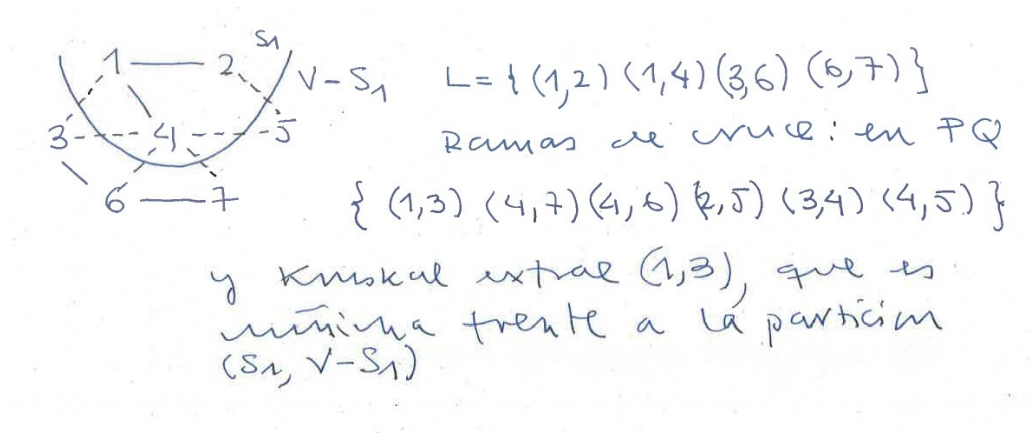 1 2 S1
V-S1 L={(1,2) (1,4) (3,6) (6,7)}
3 4 5 Ramas de cruce: en PQ
6 7 { (1,3) (4,7) (4,6) (2,5) (3,4) (4,5) }
y Kruskal extrae (1,3), que es
mínima frente a la partición
(S1, V-S1)